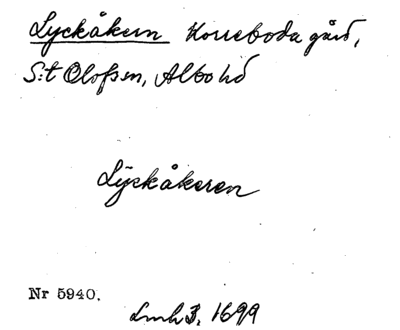 Lyckåkern Korreboda gård,
S:t Olofs sn, Albo hd
Lÿckåkeren
Nr 5940.
Lmh 3. 1699